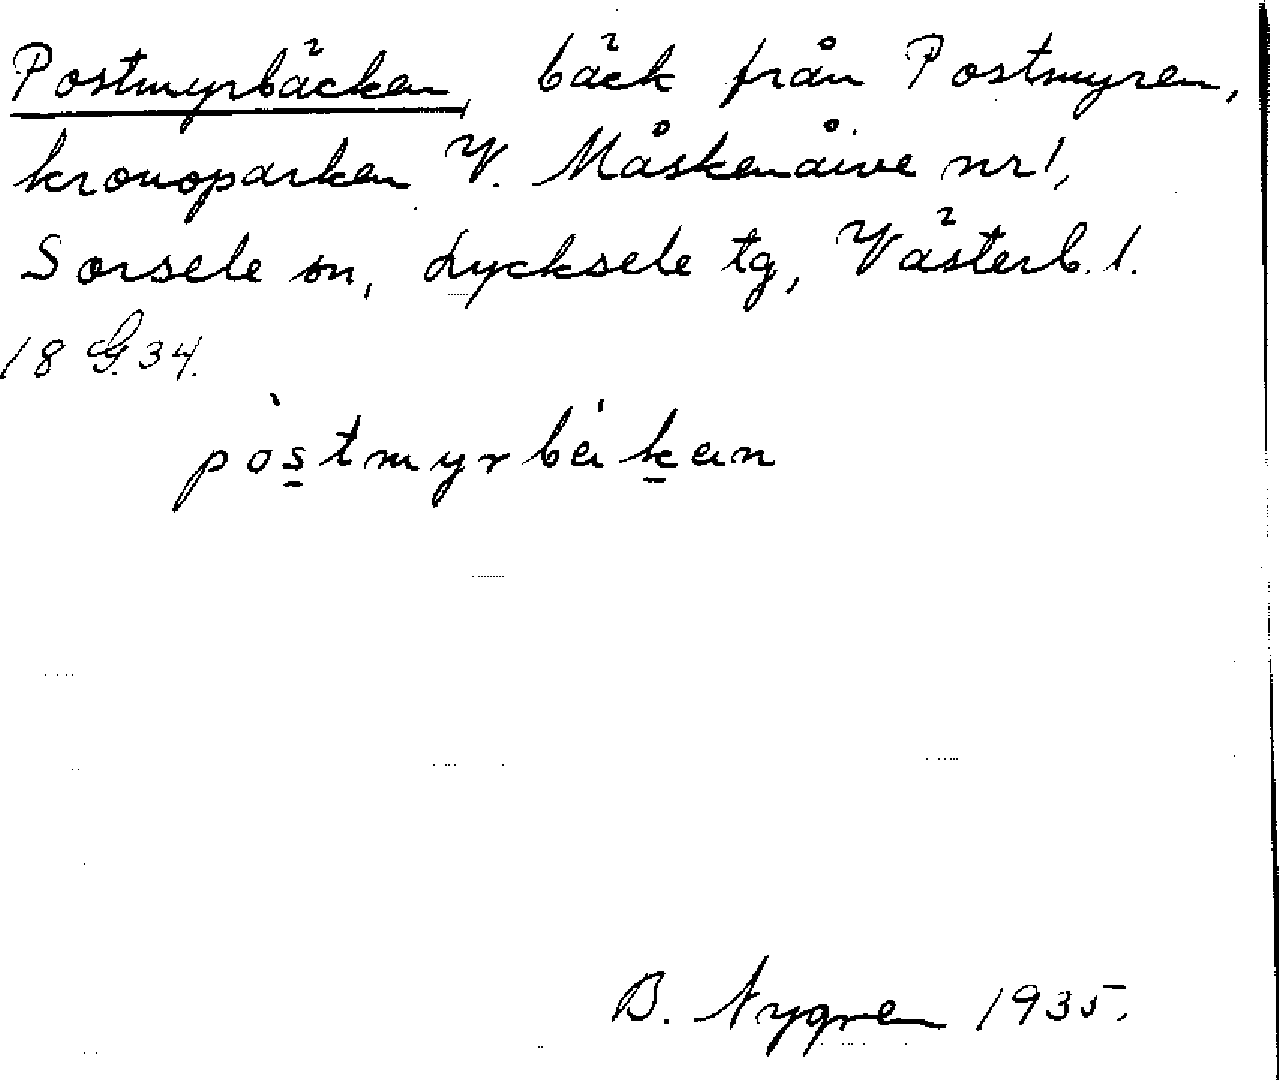 Postmyrbäcken, bäck från Postmyren,
kronoparken V. Måskenåive nr 1,
Sorsele sn, Lycksele tg, Västerb. l.
18 G. 34.
pòstmyrbákan
B. Nygren 1935.